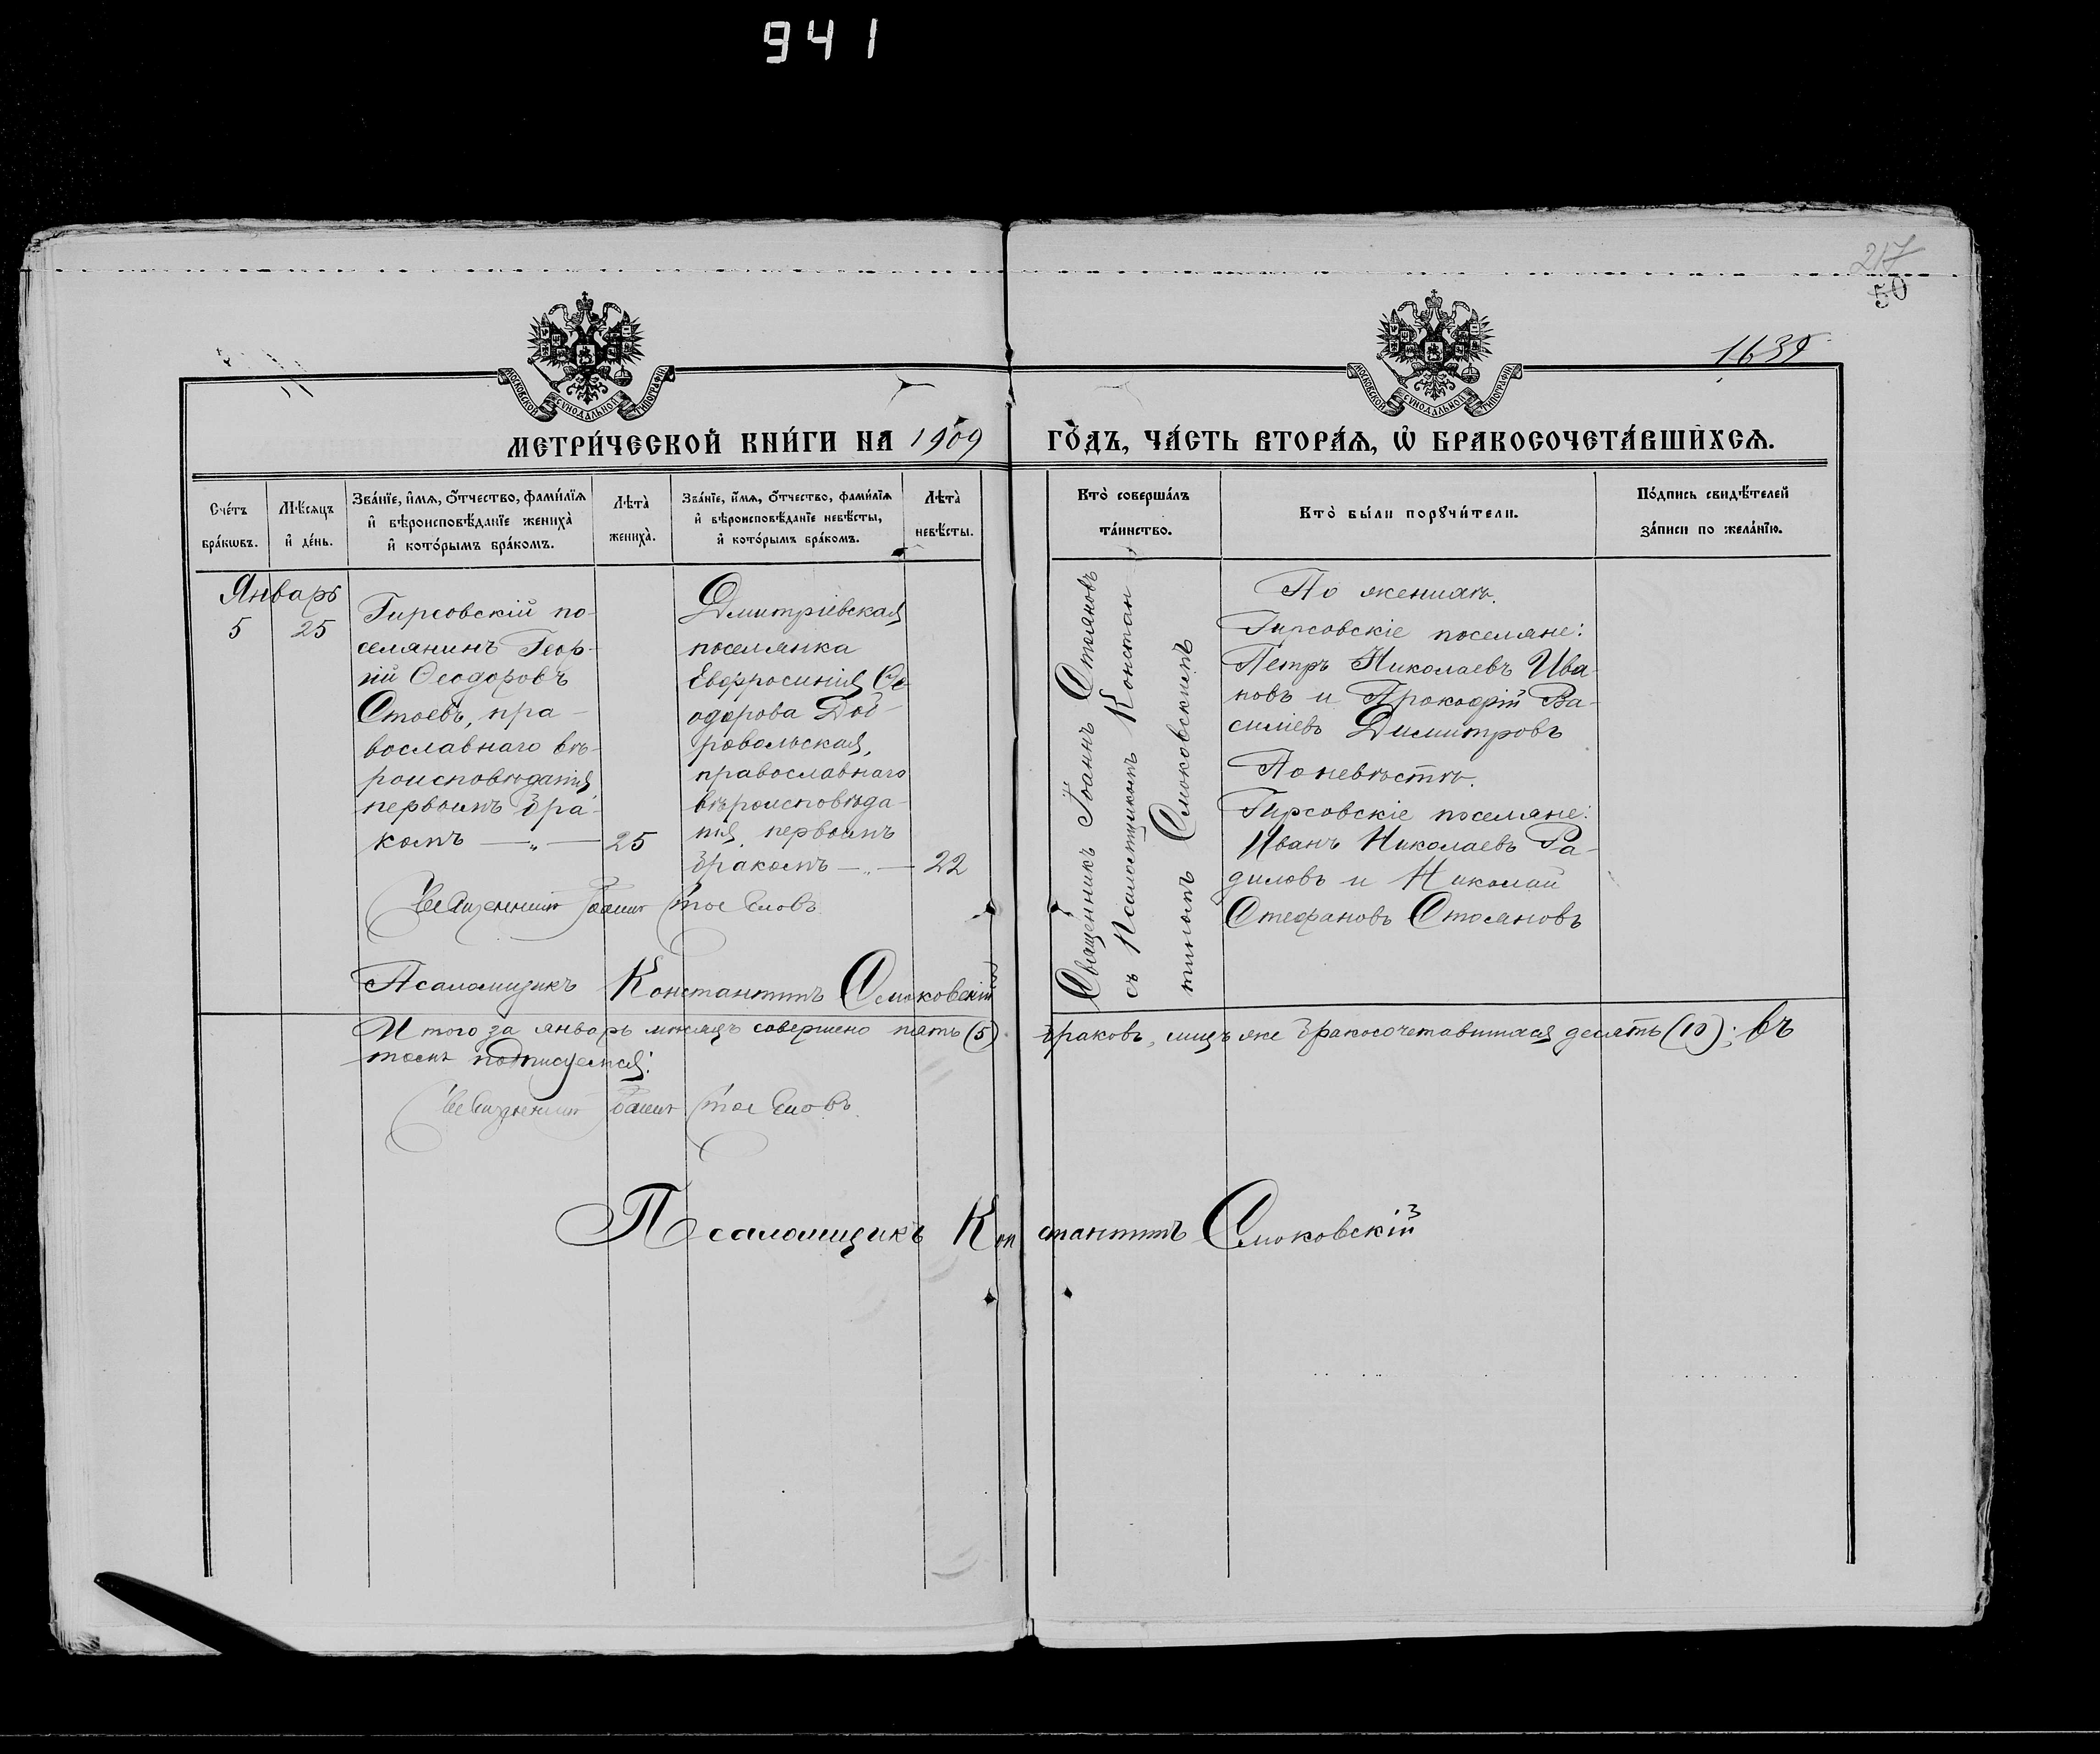 941
217
50
1639
МОСКОВСКОЙ СУНОДАЛЬНОЙ ТИПОГРАФІИ
МОСКОВСКОЙ СУНОДАЛЬНОЙ ТИПОГРАФІИ
МЕТРИ́ЧЕСКОЙ КНИ́ГИ НА 1909 ГО́ДЪ, ЧА́СТЬ ВТОРА́Ѧ, Ѽ БРАКОСОЧЕТА́ВШИХСѦ.
Сче́тъ
бра́кѡвъ.
Мѣ́сѧцъ
и҆ де́нь.
Зва́нїе, и҆́мѧ, ѻ҆́тчество, фами́лїѧ
и҆ вѣроисповѣ́данїе жениха̀
и҆ кото́рымъ бра́комъ.
Лѣта̀
жениха̀.
Зва́нїе, и҆́мѧ, ѻ҆́тчество, фами́лїѧ
и҆ вѣроисповѣ́данїе невѣ́сты,
и҆ кото́рымъ бра́комъ.
Лѣта̀
невѣ́сты.
Кто̀ соверша́лъ
та́инство.
Кто̀ бы́ли порꙋчи́тели.
По́дпись свидѣ́телей
за́писи по жела́нїю.
Январь
5
25
Гирсовскій по-
селянинъ Геор-
гій Ѳеодоровъ
Стоевъ, пра-
вославнаго вѣ-
роисповѣданія
первымъ бра-
комъ — „ —
25
Дмитріевская
поселянка
Евфросинія Ѳе-
одорова Доб-
ровольская,
православнаго
вѣроисповѣда-
нія, первымъ
бракомъ — „ —
22
Священникъ Іоаннъ Стояновъ
съ Псаломщикомъ Констан
тиномъ Смоковскимъ
По женихѣ.
Гирсовскіе поселяне:
Петръ Николаевъ Ива-
новъ и Прокофій Ва-
силіевъ Димитровъ
По невѣстѣ.
Гирсовскіе поселяне:
Иванъ Николаевъ Ра-
диловъ и Николай
Стефановъ Стояновъ
Священникъ Іоаннъ Стояновъ
Псаломщикъ Константинъ Смоковскій
Итого за январь мѣсяцъ совершено пять (5) браковъ, лицъ же бракосочетавшихся десять (10); въ
томъ подписуемся:
Священникъ Іоаннъ Стояновъ
Псаломщикъ Константинъ Смоковскій